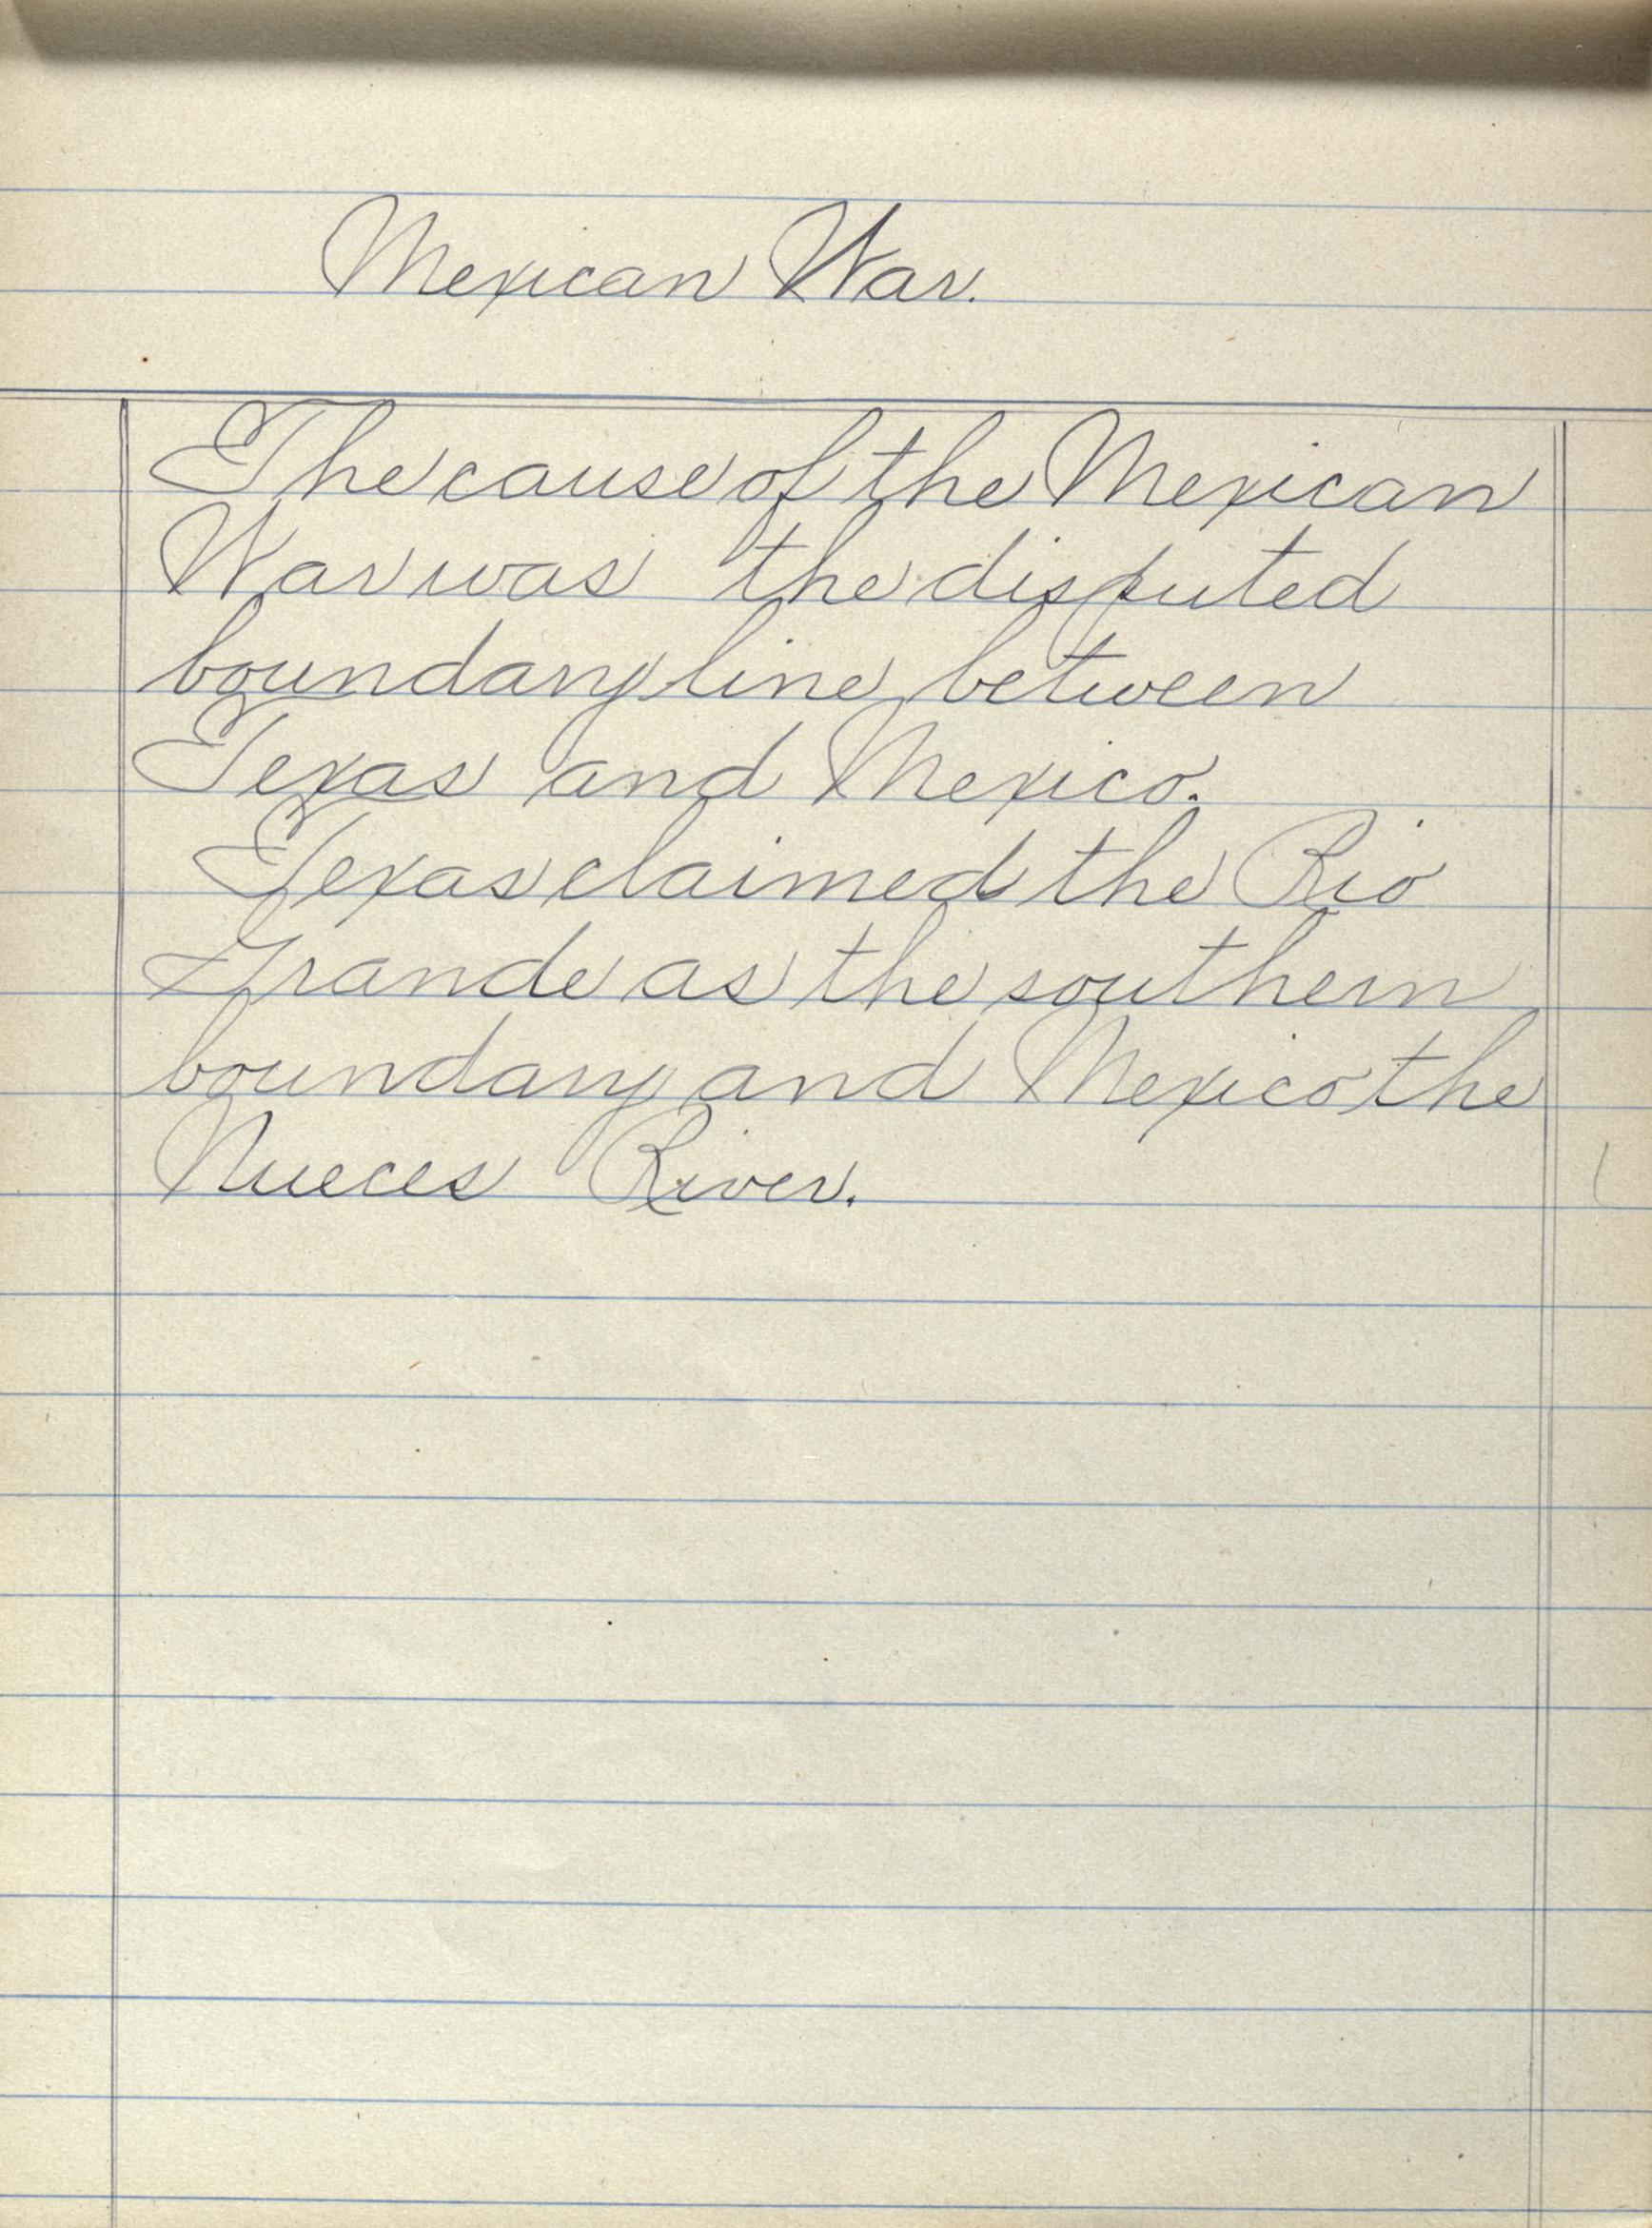 Mexican War.
The cause of the Mexican
War was the disputed
boundary line between
Texas and Mexico.
Texas claimed the Rio
Grande as the southern
boundary and Mexico the
Nueces River.